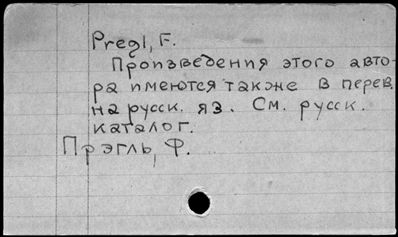 Pregl, F.
Произведения этого авто-
ра имеются также в перев.
на русск. яз. См. русск.
каталог.
Прэгль, Ф.